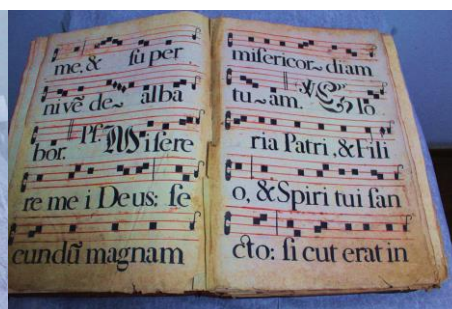 me, & ſuper
nivē de~ alba
bor. Pſ. Miſere
re me i Deus: ſe
cundū magnam
miſericor~ diam
tu~am. ℣. Glo
ria Patri, & Fili
o, & Spiri tui ſan
cto: ſi cut erat in